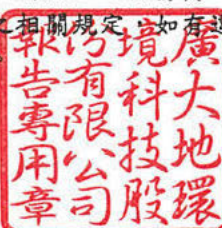 之相關規定，如有
廣大地環
境科技股
份有限公司
報告專用章